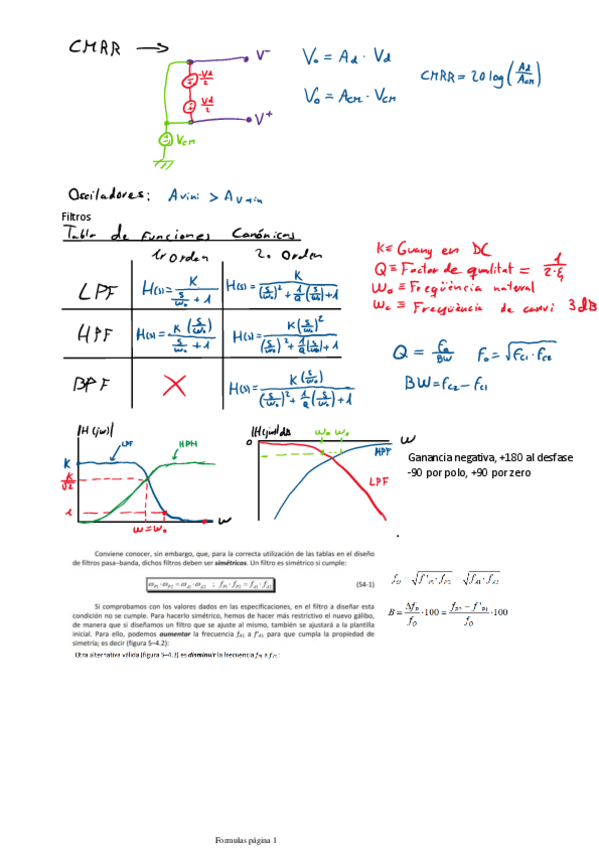 CMRR →
V⁻
Vd/2
Vd/2
V⁺
Vcm
V₀ = Ad · Vd
V₀ = Acm · Vcm
CMRR = 20 log (Ad/Acm)
Osciladores: Avini > Avmin
Filtros
Tabla de Funciones Canónicas
1r Orden 2º Orden
LPF H(s) = K / (s/ω₀ + 1) H(s) = K / ((s/ω₀)² + 1/Q (s/ω₀) + 1)
HPF H(s) = K (s/ω₀) / (s/ω₀ + 1) H(s) = K (s/ω₀)² / ((s/ω₀)² + 1/Q (s/ω₀) + 1)
BPF X H(s) = K (s/ω₀) / ((s/ω₀)² + 1/Q (s/ω₀) + 1)
K ≡ Guany en DC
Q ≡ Factor de qualitat = 1/(2·ξ)
ω₀ ≡ Freqüència natural
ωc ≡ Freqüència de canvi 3dB
Q = f₀/BW f₀ = √(fc1 · fc2)
BW = fc2 − fc1
|H(jω)|
LPF
HPH
K
K/√2
1
ω=ω₀
ω
|H(jω)|dB
0
ω
HPF
LPF
Ganancia negativa, +180 al desfase
-90 por polo, +90 por zero
Conviene conocer, sin embargo, que, para la correcta utilización de las tablas en el diseño
de filtros pasa–banda, dichos filtros deben ser simétricos. Un filtro es simétrico si cumple:
ωP1 · ωP2 = ωA1 · ωA2 ; fP1 · fP2 = fA1 · fA2 (S4-1)
Si comprobamos con los valores dados en las especificaciones, en el filtro a diseñar esta
condición no se cumple. Para hacerlo simétrico, hemos de hacer más restrictivo el nuevo gálibo,
de manera que si diseñamos un filtro que se ajuste al mismo, también se ajustará a la plantilla
inicial. Para ello, podemos aumentar la frecuencia fA1 a f'A1 para que cumpla la propiedad de
simetría; es decir (figura S–4.2):
Otra alternativa válida (figura S–4.3) es disminuir la frecuencia
fO = √(f'P1 · fP2) = √(fA1 · fA2)
B = ΔfP/fO · 100 = (fP2 − f'P1)/fO · 100
Formulas página 1